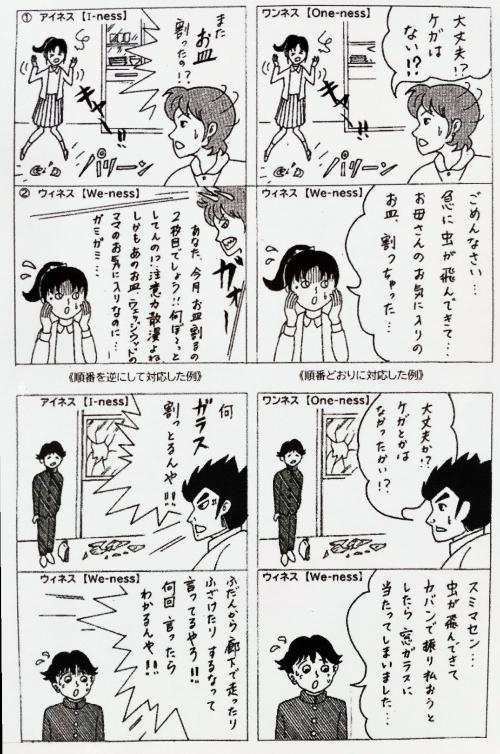 ① アイネス【I-ness】
また
お皿
割ったの!?
キャー!!
パリーン
ワンネス【One-ness】
大丈夫!?
ケガは
ない!?
キャー!!
パリーン
② ウィネス【We-ness】
あなた、今月お皿割るの
2枚目でしょう!!何ぼーっと
してんの!?注意力散漫よね
しかもあのお皿、ウェッジウッドの
ママのお気に入りなのに…
ガミガミ…
ガオー
ウィネス【We-ness】
ごめんなさい…
急に虫が飛んできて…
お母さんのお気に入りの
お皿、割っちゃった…
《順番を逆にして対応した例》
《順番どおりに対応した例》
アイネス【I-ness】
何
ガラス
割っとるんや!!
ワンネス【One-ness】
大丈夫か!?
ケガとかは
なかったかい!?
ウィネス【We-ness】
ふだんから廊下で走ったり
ふざけたりするなって
言ってるやろう!!
何回言ったら
わかるんや!!
ウィネス【We-ness】
スミマセン…
虫が飛んできて
カバンで振り払おうと
したら窓ガラスに
当たってしまいました…